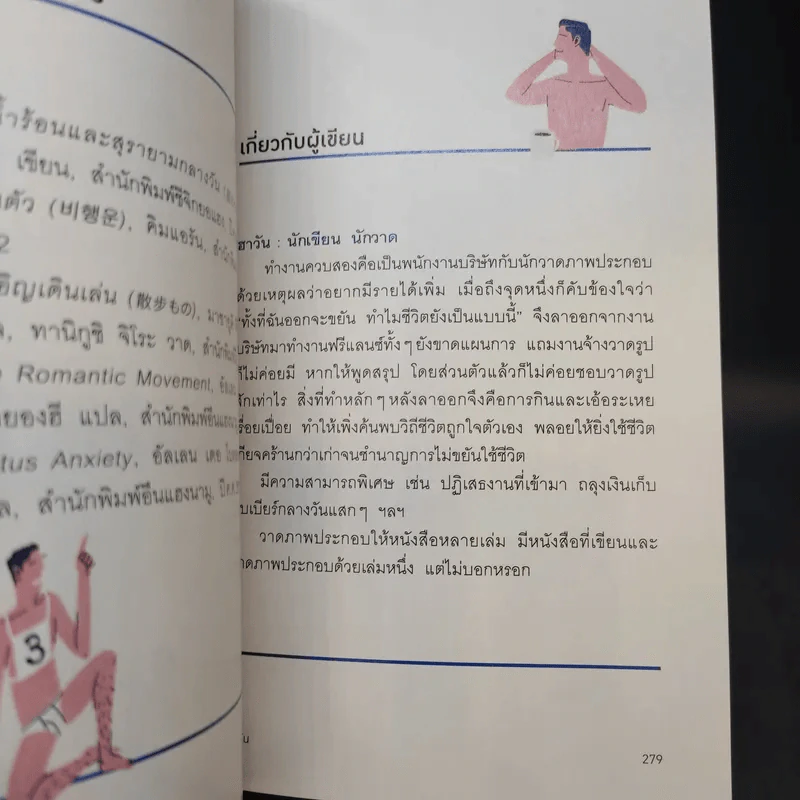 และสุรายามกลางวัน
เขียน, สำนักพิมพ์ซีจิกยอแฮง
ตัว (비행운), คิมแอรัน,
2
เดินเล่น (散歩もの),
ทานิกูชิ จิโระ วาด,
Romantic Movement,
ยองฮี แปล, สำนักพิมพ์อึนแฮงนามู
tus Anxiety, อัลเลน เดอ
สำนักพิมพ์อึนแฮงนามู,
3
เกี่ยวกับผู้เขียน
ฮาวัน : นักเขียน นักวาด
ทำงานควบสองคือเป็นพนักงานบริษัทกับนักวาดภาพประกอบ
ด้วยเหตุผลว่าอยากมีรายได้เพิ่ม เมื่อถึงจุดหนึ่งก็คับข้องใจว่า
“ทั้งที่ฉันออกจะขยัน ทำไมชีวิตยังเป็นแบบนี้” จึงลาออกจากงาน
บริษัทมาทำงานฟรีแลนซ์ทั้งๆ ยังขาดแผนการ แถมงานจ้างวาดรูป
ก็ไม่ค่อยมี หากให้พูดสรุป โดยส่วนตัวแล้วก็ไม่ค่อยชอบวาดรูป
สักเท่าไร สิ่งที่ทำหลักๆ หลังลาออกจึงคือการกินและเอ้อระเหย
เรื่อยเปื่อย ทำให้เพิ่งค้นพบวิถีชีวิตถูกใจตัวเอง พลอยให้ยิ่งใช้ชีวิต
เกียจคร้านกว่าเก่าจนชำนาญการไม่ขยันใช้ชีวิต
มีความสามารถพิเศษ เช่น ปฏิเสธงานที่เข้ามา ถลุงเงินเก็บ
เบียร์กลางวันแสกๆ ฯลฯ
วาดภาพประกอบให้หนังสือหลายเล่ม มีหนังสือที่เขียนและ
วาดภาพประกอบด้วยเล่มหนึ่ง แต่ไม่บอกหรอก
279